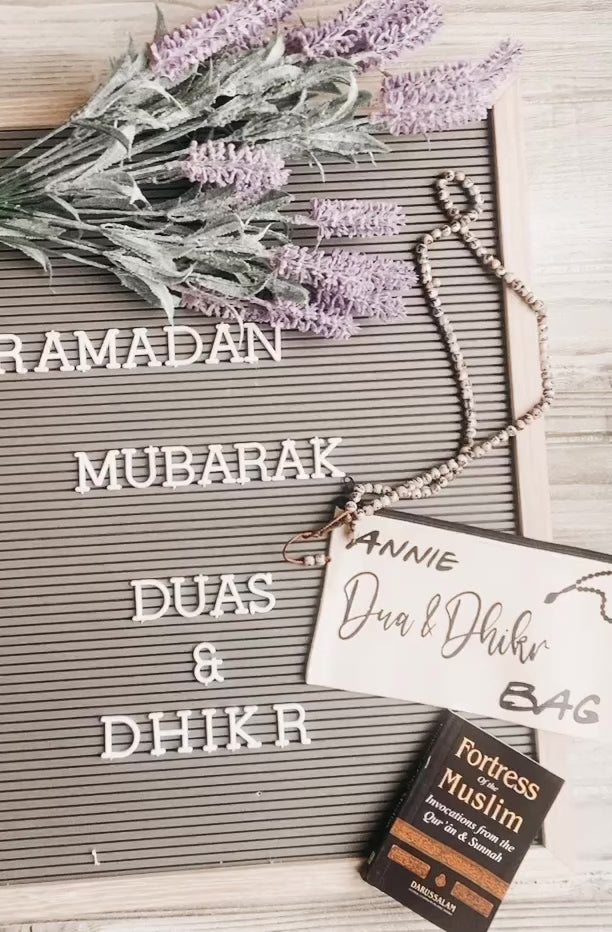 RAMADAN
MUBARAK
DUAS
&
DHIKR
ANNIE
Dua & Dhikr
BAG
Fortress
Of the
Muslim
Invocations from the
Qur'an & Sunnah
DARUSSALAM